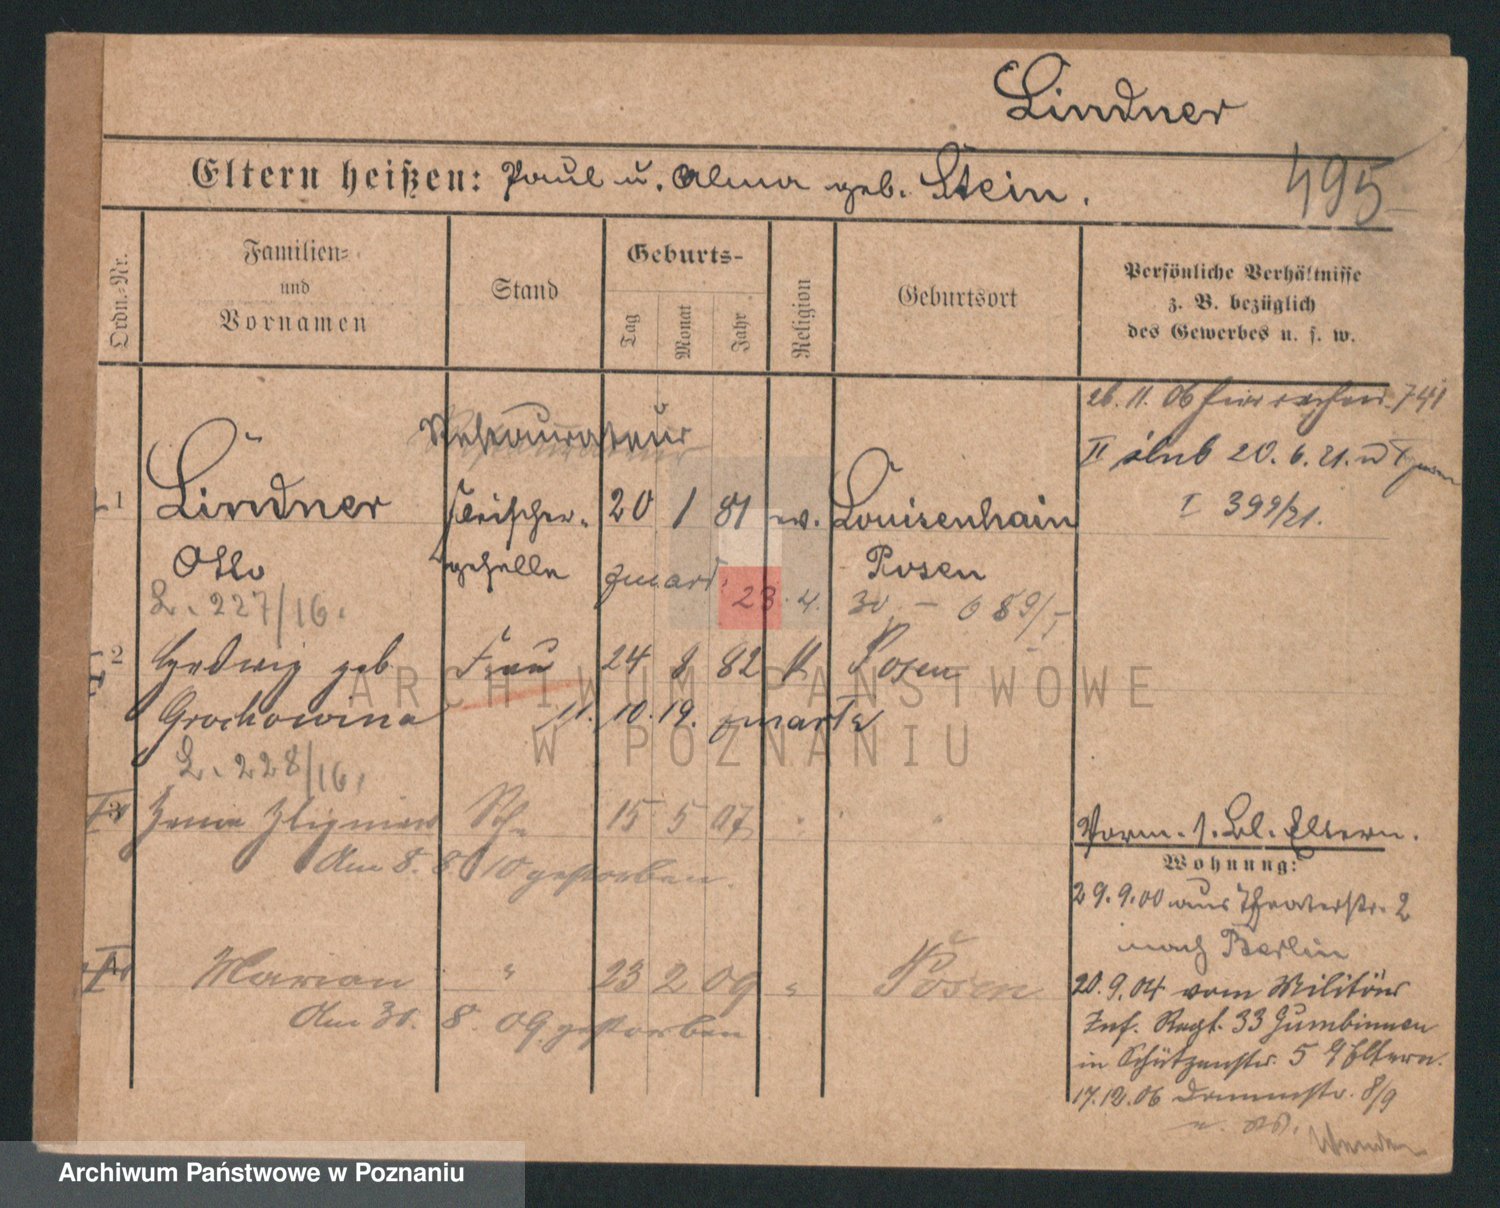 Lindner
Eltern heißen: Paul u. Alma geb. Stein.
495
Ordn.-Nr.
Familien-
und
Vornamen
Stand
Geburts-
Tag
Monat
Jahr
Religion
Geburtsort
Persönliche Verhältnisse
z. B. bezüglich
des Gewerbes u. s. w.
26. 11. 06
741
Restaurateur
II 20. 6. 21.
1 Lindner Fleischer- 20 1 81 ev. Louisenhain
I 399/21.
Otto geselle Posen
L. 227/16. 23. 4. 30 - 689/
2 Hedwig geb Frau 24 9 82 k Posen
Grochowina 11. 10. 19.
L. 228/16.
3 Zbigniew 15 5 07
Am 8. 8 10 gestorben.
Vorm. s. Bl. Eltern.
Wohnung:
29. 9. 00 aus Theaterstr. 2
nach Berlin
4 Marian " 23 2 09 " Posen
Am 30. 8. 09. gestorben
20. 9. 04 vom Militär
Inf. Regt. 33 Gumbinnen
in Schützenstr. 5 Eltern.
17. 12. 06 Dammstr. 8/9
Wenden
ARCHIWUM PAŃSTWOWE
W POZNANIU
Archiwum Państwowe w Poznaniu